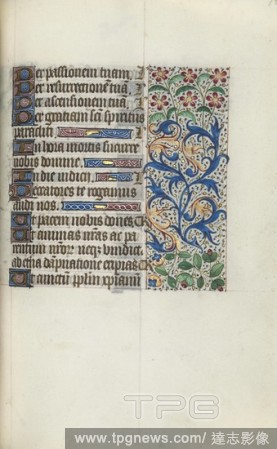 Per passionem tuam
Per resurrectionē tuā,
Per ascensionem tuā,
Per gratiam sc̄i spiritus
paracliti,
In hora mortis succurre
nobis domine.
In die iudicii,
Peccatores te rogamus
audi nos.
Ut pacem nobis dones,
Ut animas nr̄as ac pa
rentum nr̄or̄ neq;
ab eterna dāpnatione eripias
Ut cunctū pplm xp̄ianū
TPG
www.tpgnews.com/達志影像